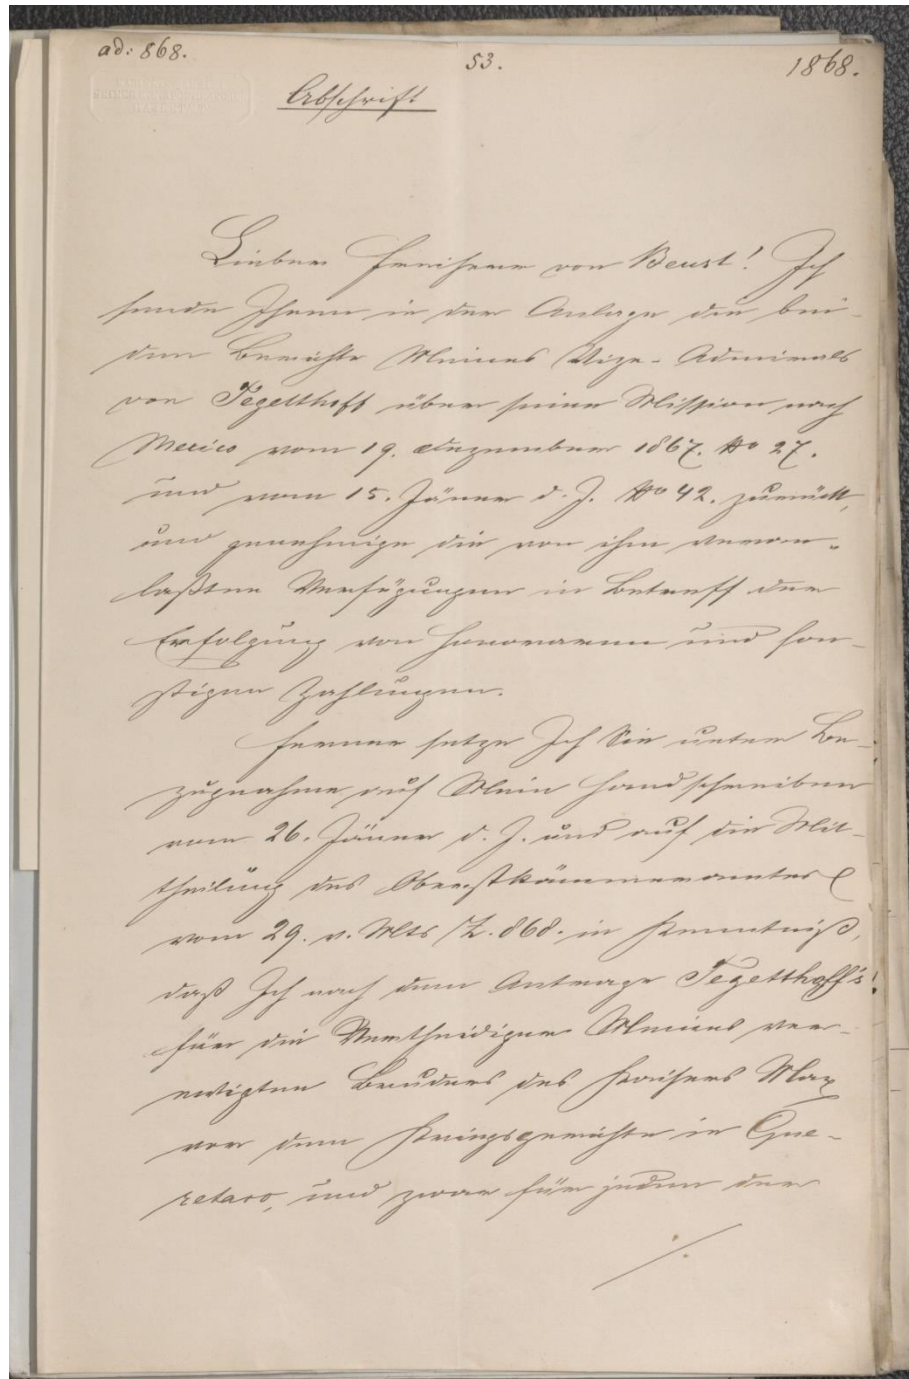 ad: 868.
53.
1868.
Abschrift
Lieber Freiherr von Beust! Ich
sende Ihnen in der Anlage die bei-
den Berichte Meines Vize-Admirals
von Tegetthoff über seine Mission nach
Mexico vom 19. Dezember 1867. No 27.
und vom 15. Jänner d. J. No 42. zurück,
und genehmige die von ihm veran-
laßten Verfügungen in Betreff der
Erfolgung von Honoraren und son-
stigen Zahlungen.
Ferner setze Ich Sie unter Be-
zugnahme auf Mein Handschreiben
vom 26. Jänner d. J. und auf die Mit-
theilung des Oberstkämmereramtes
vom 29. v. Mts Z. 868. in Kenntniß,
daß Ich nach dem Antrage Tegetthoff's
für die Vertheidiger Meines ver-
ewigten Bruders des Kaisers Max
vor dem Kriegsgerichte in Que-
retaro, und zwar für jeden der
./.